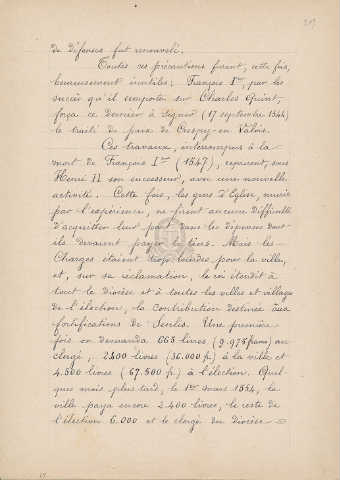 219
de défense fut renouvelé.
Toutes ces précautions furent, cette fois,
heureusement inutiles; François Ier, par les
succès qu'il remporta sur Charles Quint,
força ce dernier à signer (17 septembre 1544)
le traité de paix de Crespy-en Valois.
Ces travaux, interrompus à la
mort de François Ier (1547), reprirent, sous
Henri II son successeur, avec une nouvelle
activité. Cette fois, les gens d'Église, mûris
par l'expérience, ne firent aucune difficulté
d'acquitter leur part dans les dépenses dont
ils devaient payer le tiers. Mais les
Charges étaient trop lourdes pour la ville,
et, sur sa réclamation, le roi étendit à
tout le diocèse et à toutes les villes et villages
de l'élection, la contribution destinée aux
fortifications de Senlis. Une première
fois on demanda 665 livres (9.975 francs) au
clergé, 2400 livres (36.000 f.) à la ville et
4.500 livres (67.500 f.) à l'élection. Quel-
ques mois plus tard, le 1er mars 1554, la
ville paya encore 2.400 livres, le reste de
l'élection 6.000 et le clergé du diocèse